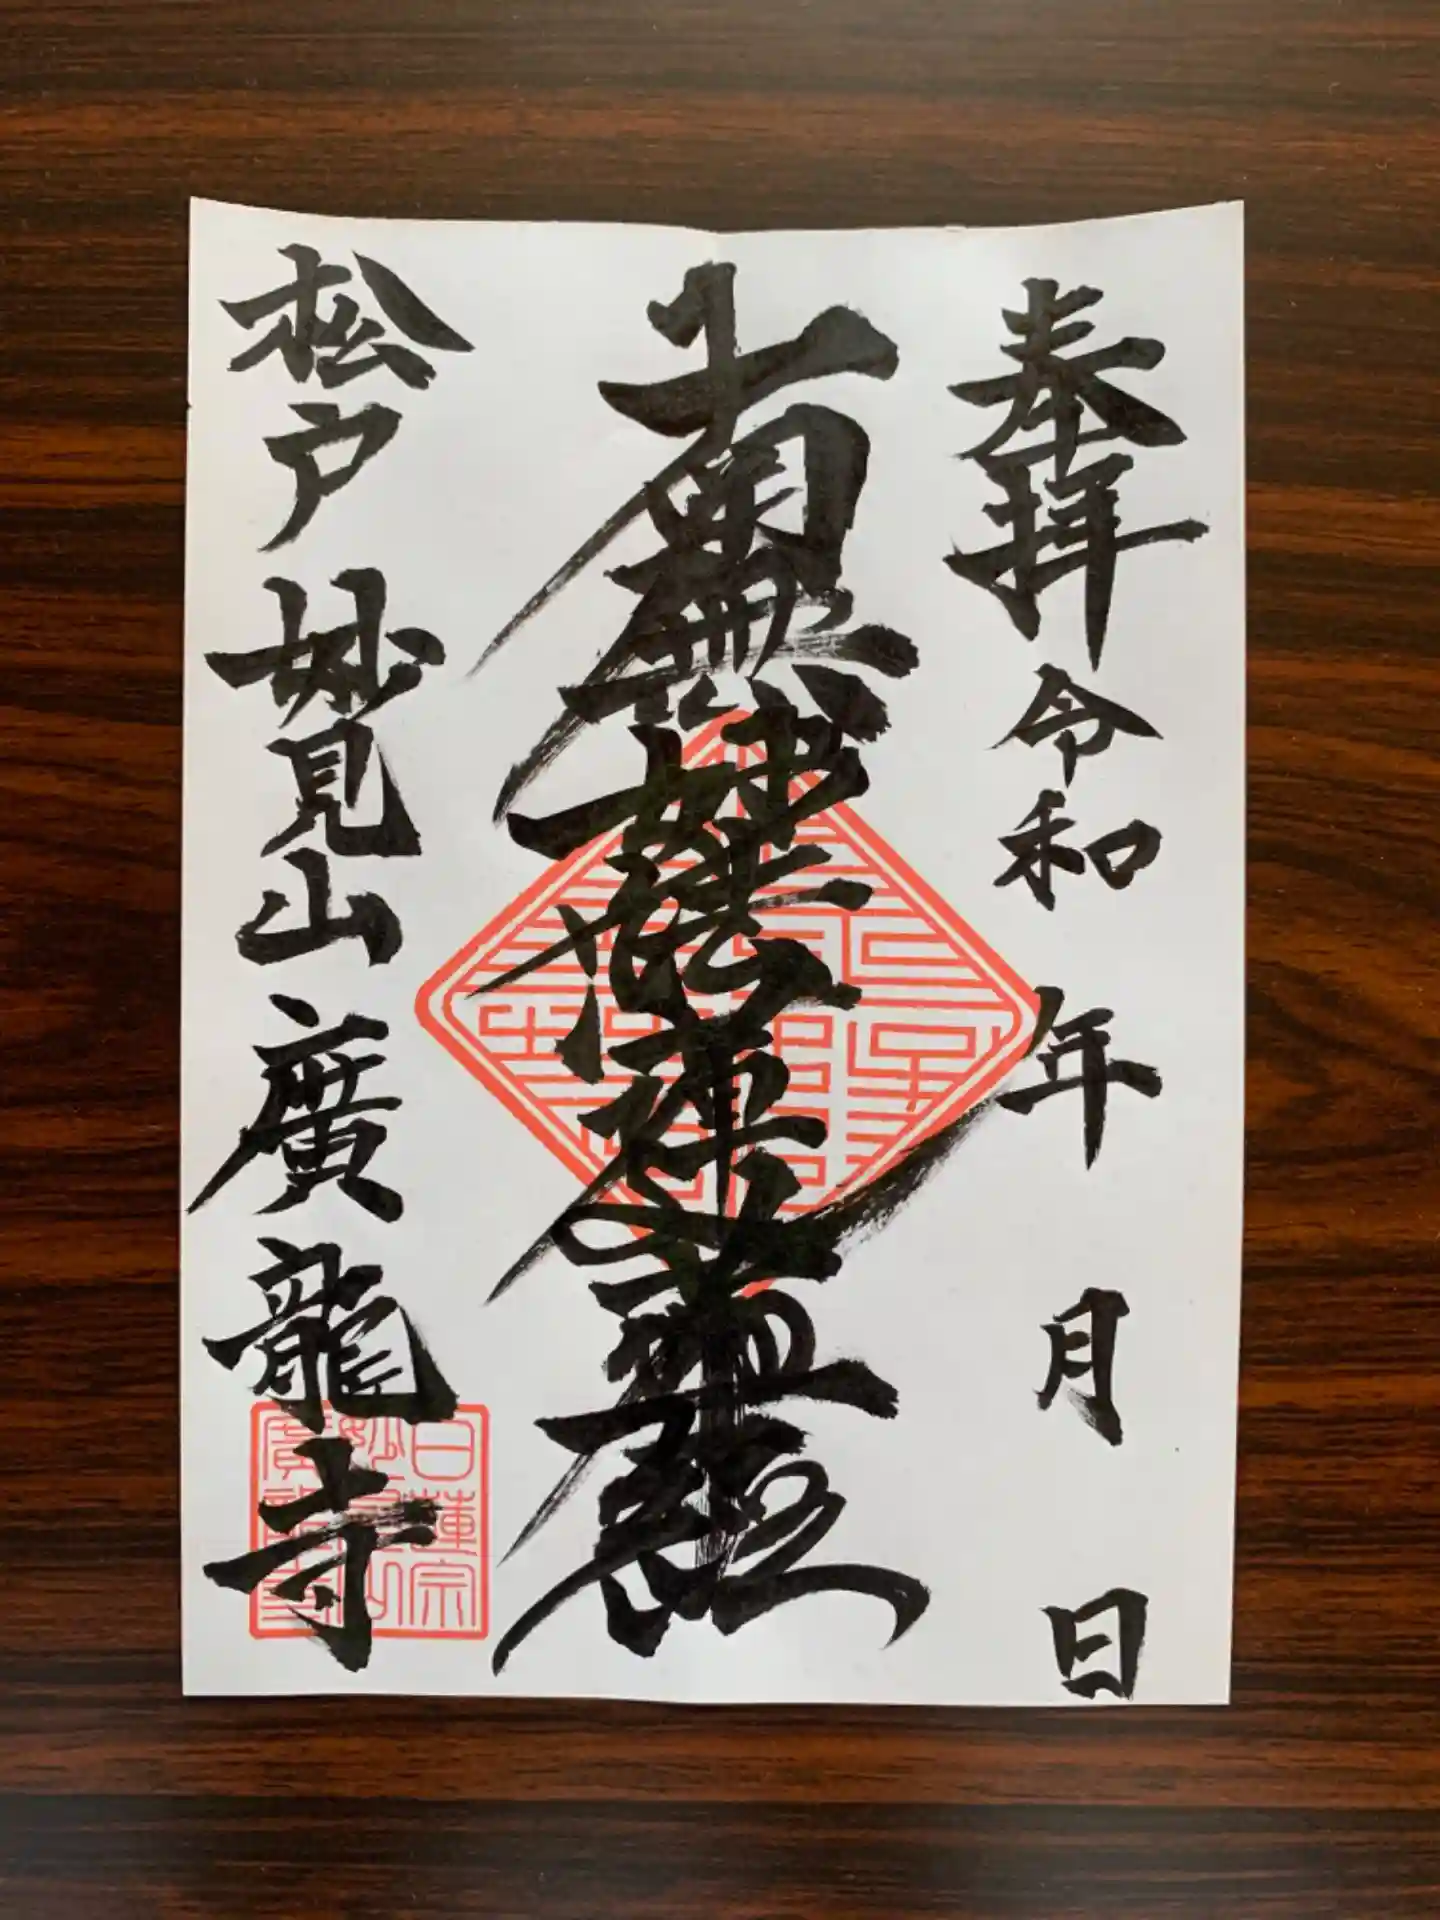 奉拝 令和 年 月 日
南無妙法蓮華経
松戸 妙見山 廣龍寺
日蓮宗
妙見山
廣龍寺